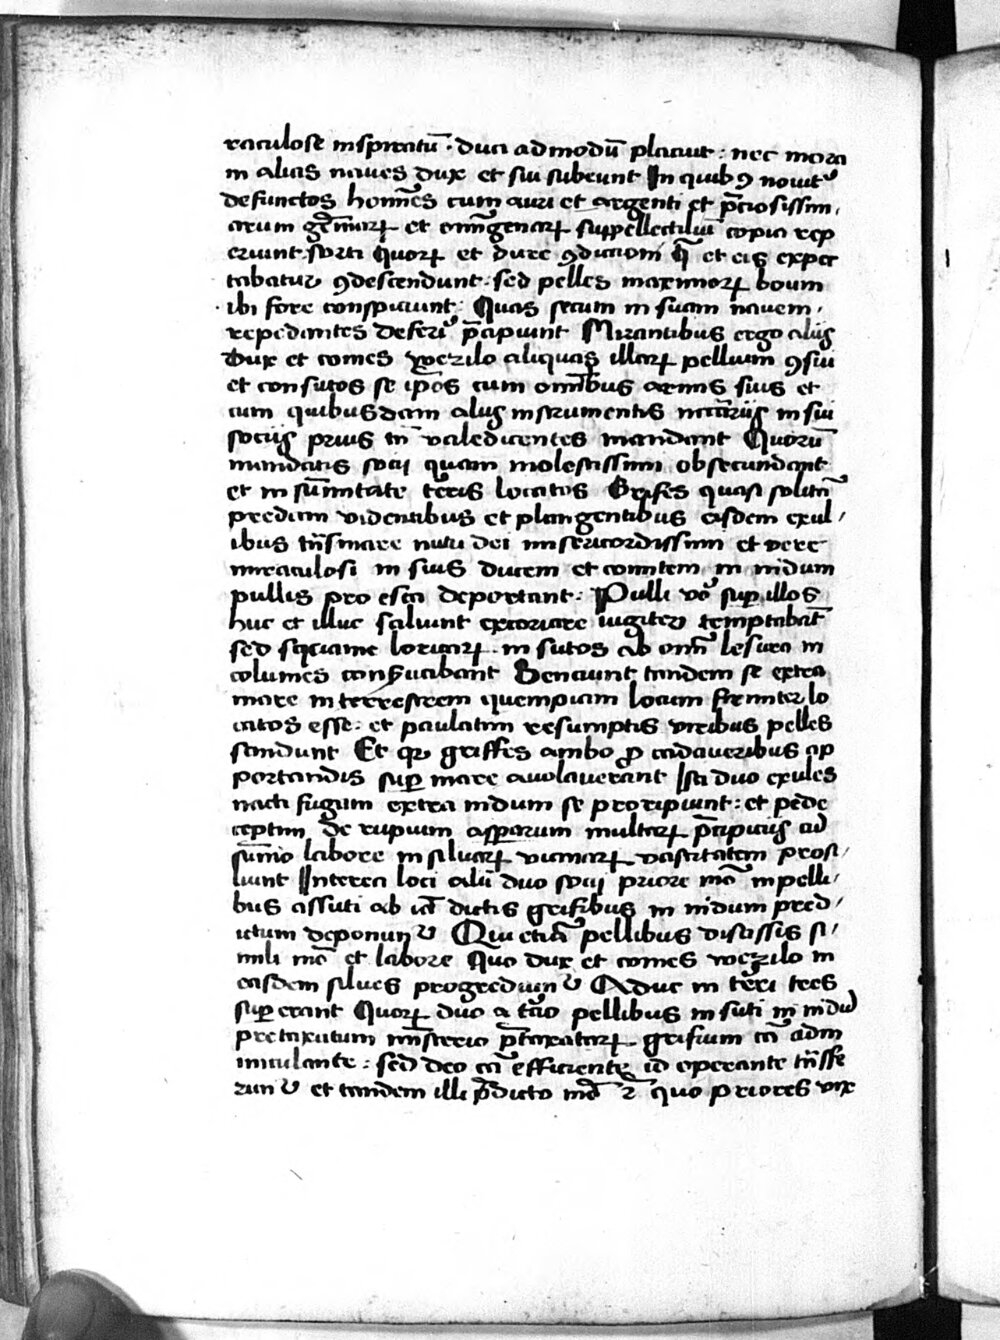 raculose inspiratū · duci admodū placuit : nec mora
in alias naues dux et sui subeunt In quibꝯ nouit᷑
defunctos homīes cum auri et argenti et p̄ciosissim,
arum gēmarꝝ et om̄igenarꝝ suppellectiliū copia rep
eriunt · sorti quorꝝ et dure ꝯdicioni q̄ et eis expec
tabatur ꝯdescendunt · sed pelles maximorꝝ boum
ibi fore conspiciunt : Quas secum in suam nauem,
repedantes deferi᷑ p̄cipiunt Mirantibus ergo aliis
Dux et comes wezilo aliquas illarꝝ pellium ꝯsui
et consutos se ip̄os cum om̄ibus armis suis et
cum quibusdam aliis instrumentis nēcāriis in sui
sociis prius tn̄ valedicentes mandant Quorū
mandatis socij quam molestissimi obsecundant
et in sūmitate terris locatos Grifes quasi solitā
predam videntibus et plangentibus eisdem exul,
ibus trāsmare nutu dei misericordissimi et vere
miraculosi in suis ducem et comitem in nidum
pullis pro esca deportant : Pulli vō sup̱ illos
huc et illuc saliunt excoriare iugiter temptabāt
sed squame loricarꝝ insutos ab om̄i lesura in
columes conẜuabant Senciunt tandem se extra
mare in terrestrem quempiam locum firmiter lo
catos esse : et paulatim resumptis viribus pelles
scindunt Et qꝛ griffes ambo ꝓ cadaueribus ap
portandis sup̱ mare auolauerant Isti duo exules
nacti fugam extra nidum se proripiunt : et pede
ceptim de rupium asp̱arum multarꝝ p̄cipiciis ad
sūmo labore in siluarꝝ vicinarꝝ vastitatem prosi,
liunt Interea loci alii duo socij priore mō in pelli,
bus assuti ab iā dictis grifibus in nidum pred,
ictum deponunt᷑ Qui etiā pellibus discissis si,
mili mō et labore Quo dux et comes wezilo in
easdem siluas progrediunt᷑ Adhuc in teri tres
sup̱erant Quorꝝ duo a tercio pellibus insuti in nidū
pretaxatum misterio p̄taxatarꝝ grifium eā adm
iniculante : sed deo eā efficiente id operante trāsfe
runt᷑ et tandem illi p̄dicto mō ⁊ quo priores vix